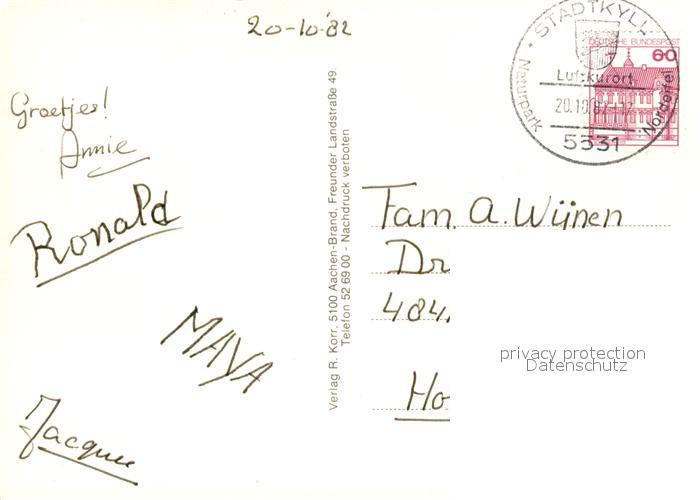 20-10-82
Groetjes!
Annie
Ronald
MAYA
Jacques
Verlag R. Korr, 5100 Aachen-Brand, Freunder Landstraße 49
Telefon 52 69 00 - Nachdruck verboten
STADTKYLL
Naturpark
Nordeifel
Luftkurort
20.10.82-17
5531
DEUTSCHE BUNDESPOST
60
Fam. A. Wijnen
Dr
484
Ho
privacy protection
Datenschutz